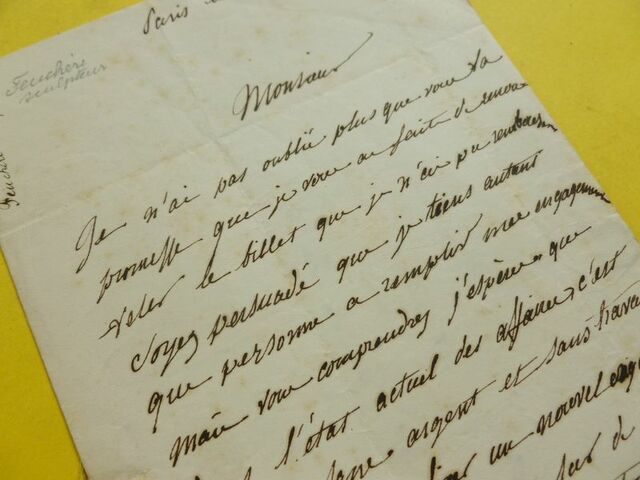 Paris
Feuchère
sculpteur
Feuchère
Monsieur
Je n'ai pas oublié plus que vous la
promesse que je vous ai faite de renou
veler le billet que je n'ai pu rembourser
Soyez persuadé que je tiens autant
que personne a remplir mes engagemens
Mais vous comprendrez j'espère que
l'état actuel des affaires c'est
argent et sans trava
un nouvel enga
sur de